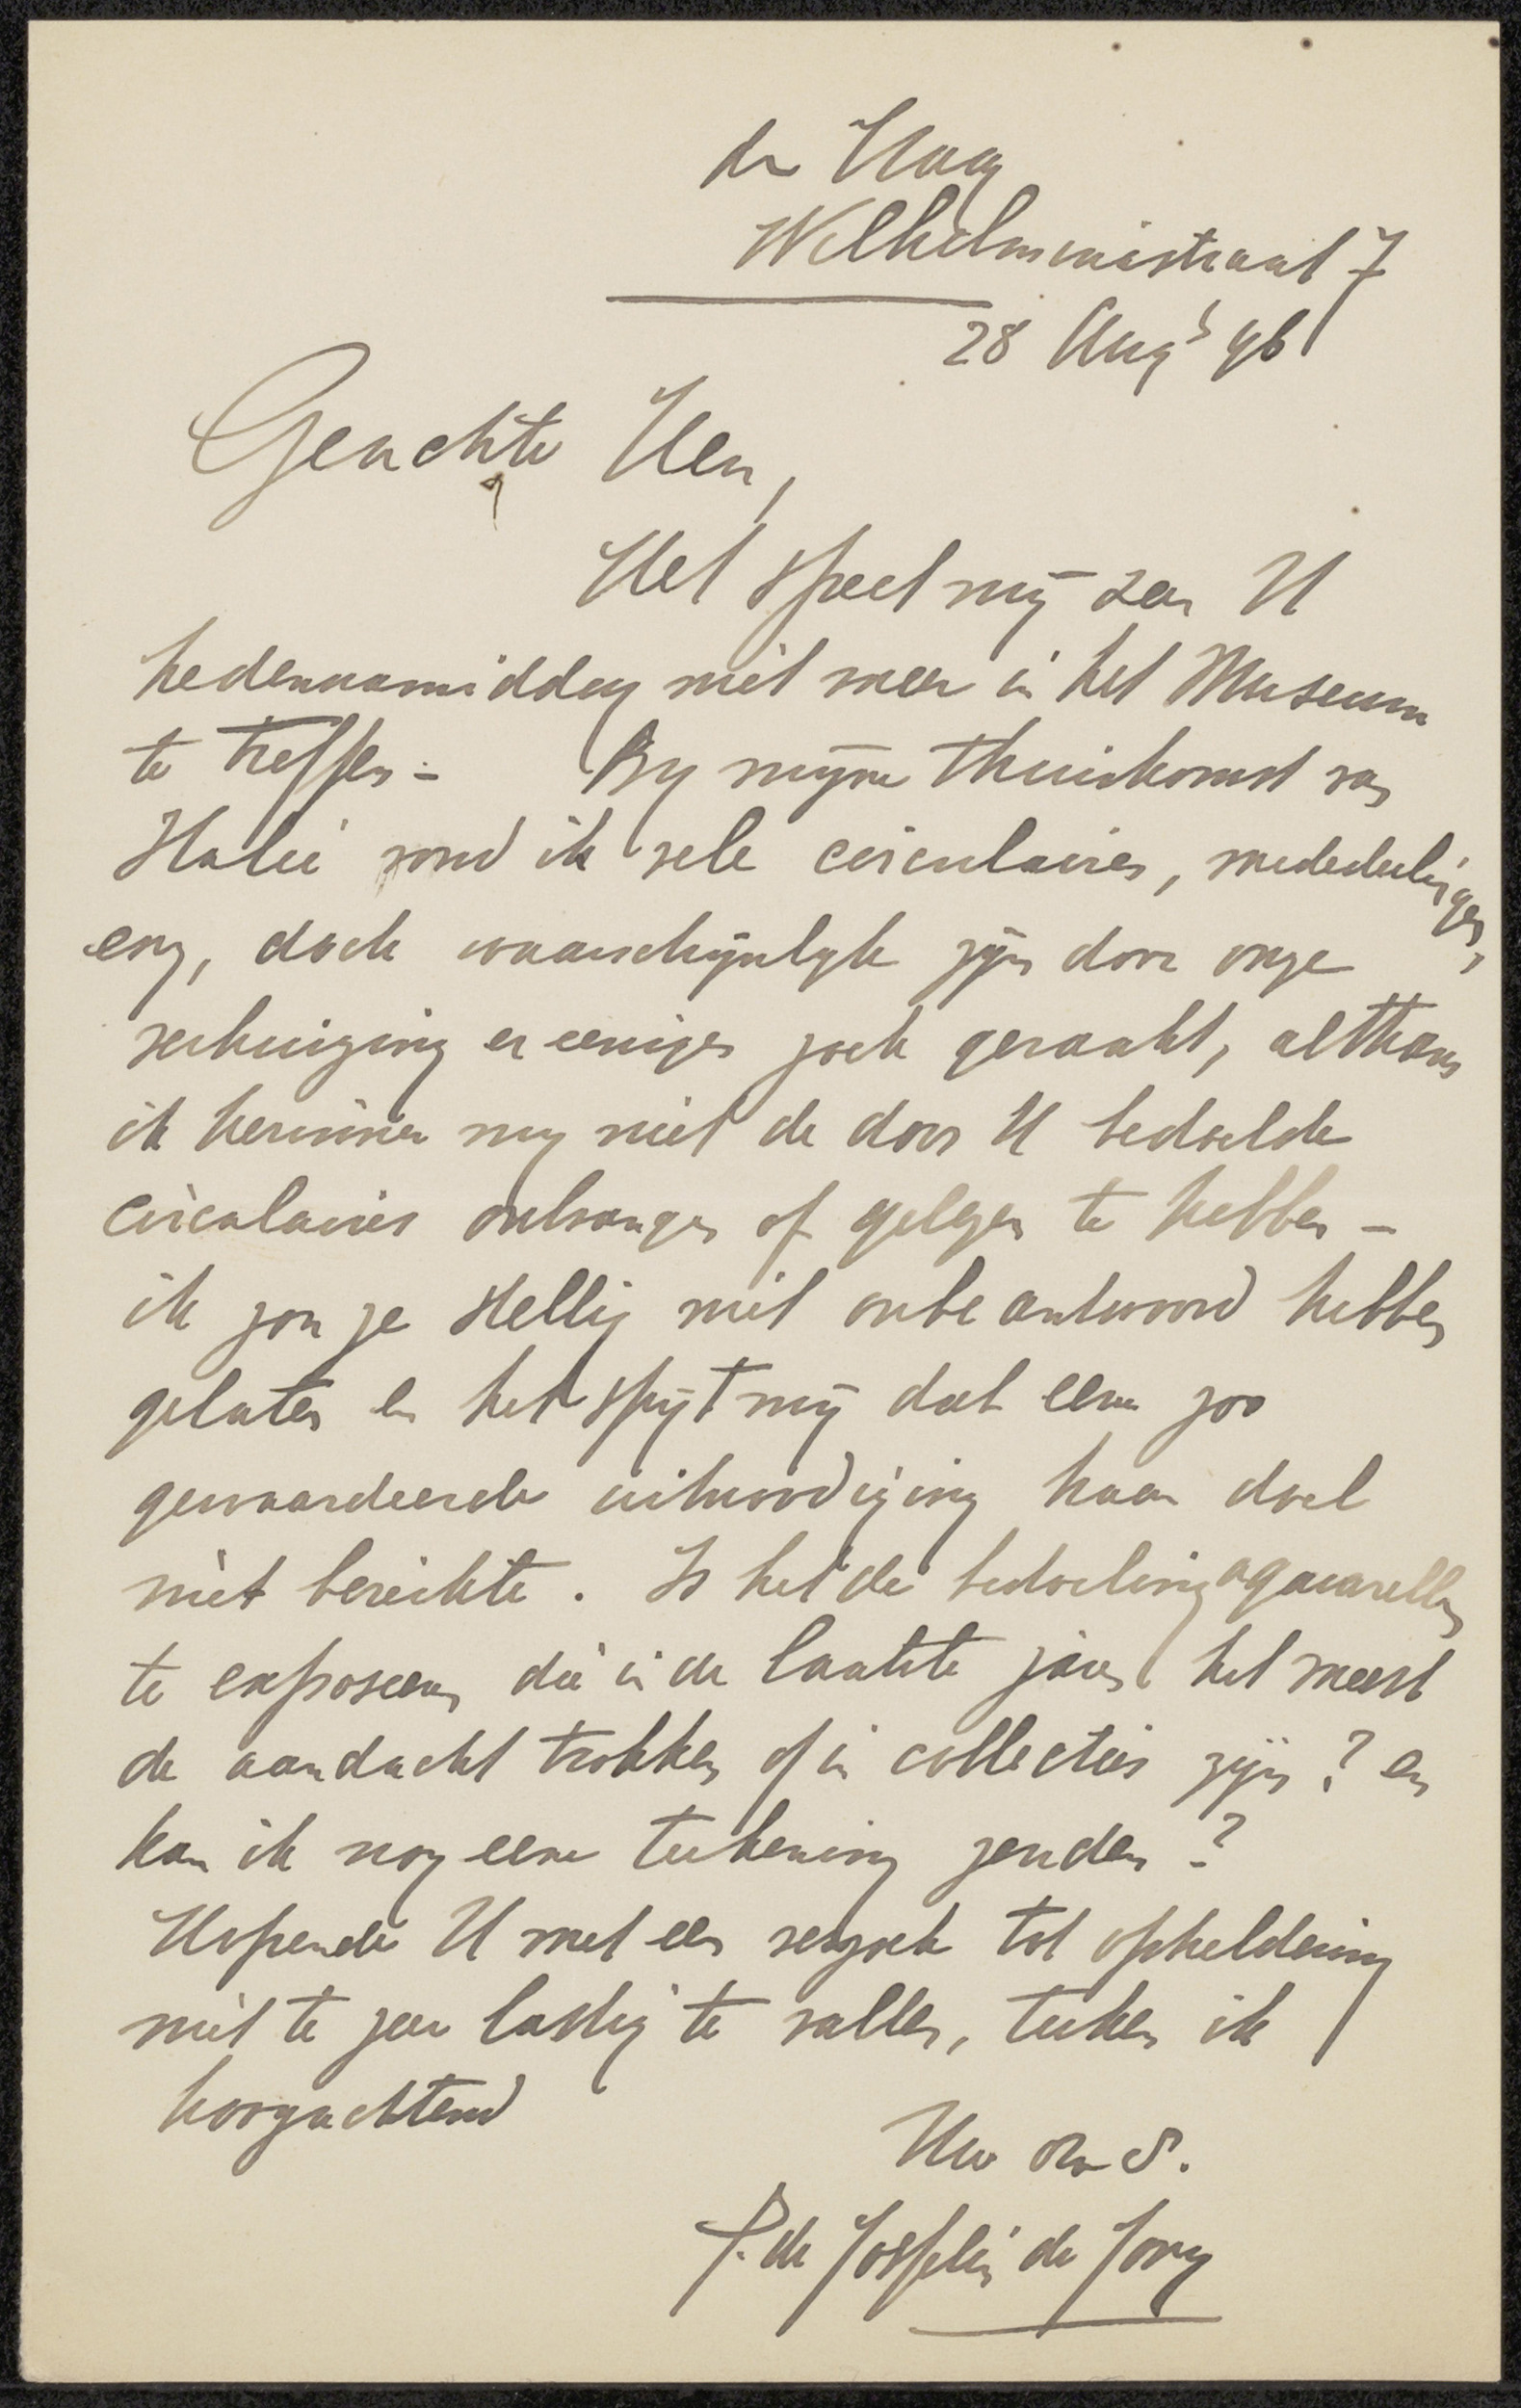 den Haag
Wilhelminastraat 7
28 Augs 96
Geachte Heer,
Het speet mij zeer U
hedennamiddag niet meer in het Museum
te treffen – By mijne thuiskomst van
Italië vond ik vele circulaires, mededeelingen,
enz, doch waarschijnlyk zijn door onze
verhuizing er eenige zoek geraakt, althans
ik herinner my niet de door U bedoelde
circulaires ontvangen of gelezen te hebben –
ik zou ze stellig niet onbeantwoord hebben
gelaten en het spijt mij dat eene zoo
gewaardeerde uitnoodiging haar doel
niet bereikte. Is het de bedoeling aquarellen
te exposeeren die in de laatste jaren het meest
de aandacht trokken of in collecties zijn? en
kan ik nog eene teekening zenden?
Hopende U met een verzoek tot opheldering
niet te zeer lastig te vallen, teeken ik
hoogachtend
Uw dw d.
P. de Josselin de Jong